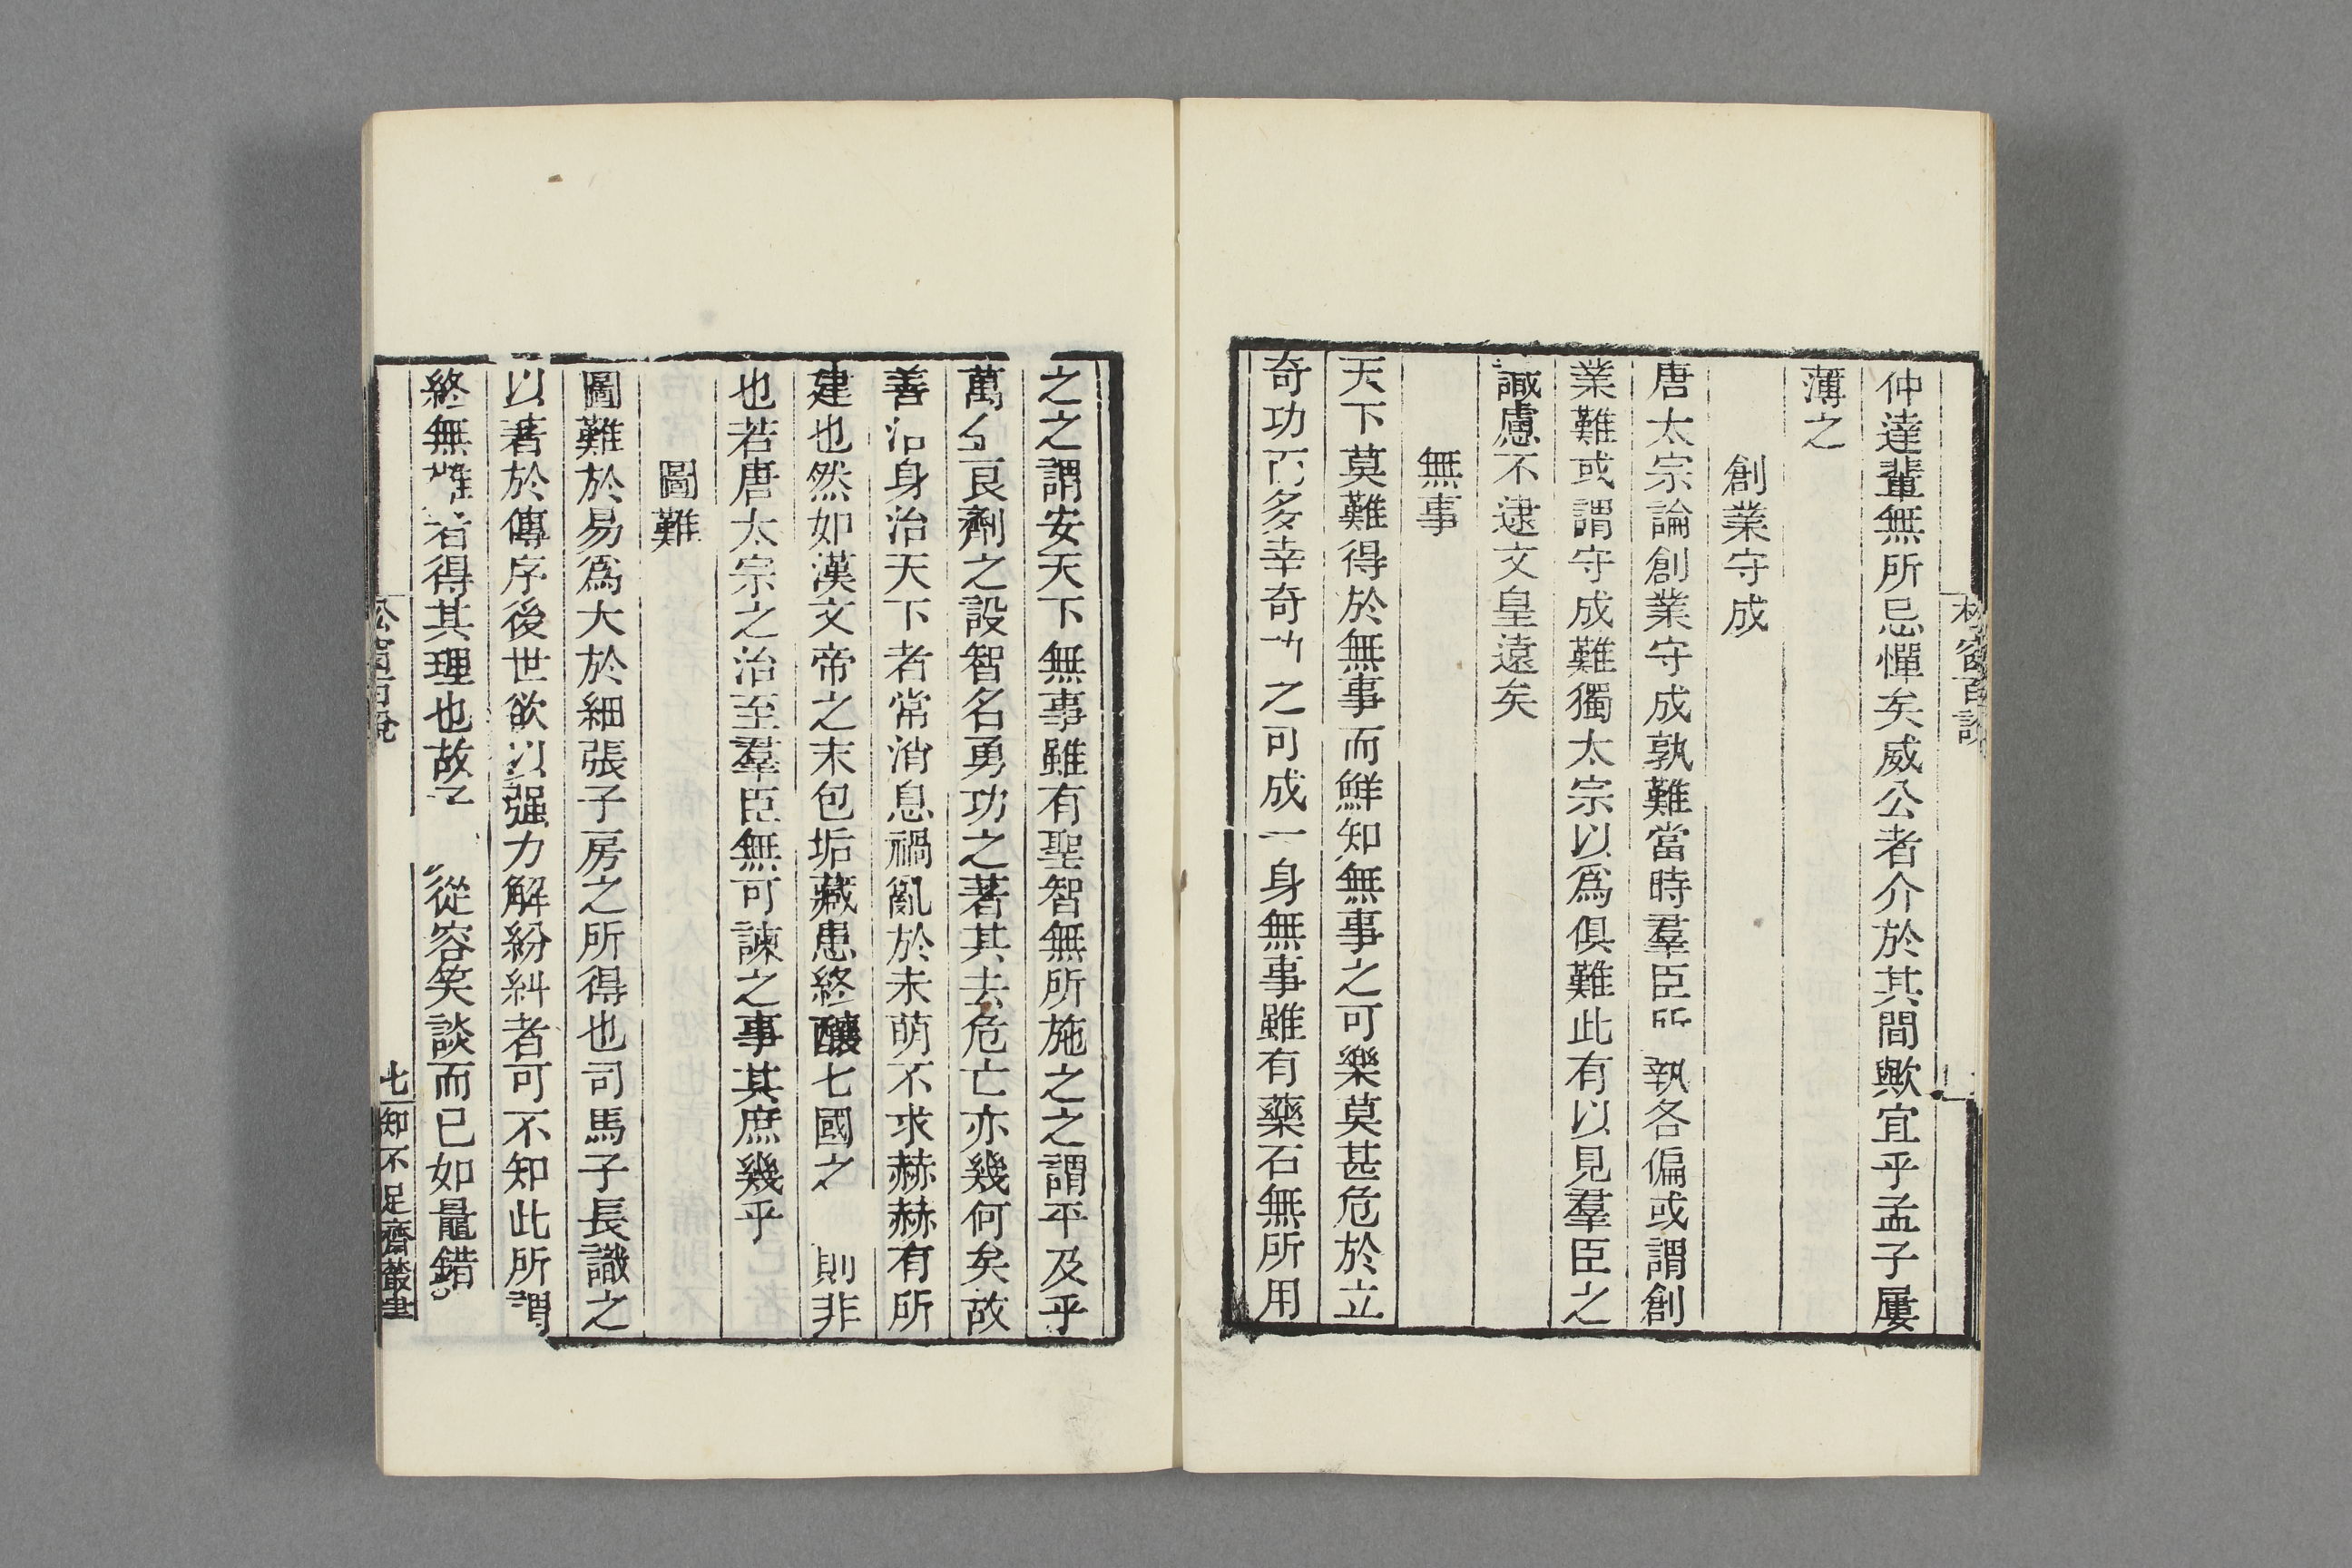 仲達輩無所忌憚矣威公者介於其間歟宜乎孟子屢
薄之
創業守成
唐太宗論創業守成孰難當時羣臣所執各偏或謂創
業難或謂守成難獨太宗以爲俱難此有以見羣臣之
識慮不逮文皇遠矣
無事
天下莫難得於無事而鮮知無事之可樂莫甚危於立
奇功而多幸奇功之可成一身無事雖有藥石無所用
之之謂安天下無事雖有聖智無所施之之謂平及乎
萬全良劑之設智名勇功之著其去危亡亦幾何矣故
善治身治天下者常消息禍亂於未萌不求赫赫有所
建也然如漢文帝之末包垢藏患終釀七國之 則非
也若唐太宗之治至羣臣無可諫之事其庶幾乎
圖難
圖難於易爲大於細張子房之所得也司馬子長識之
以著於傳序後世欲以强力解紛糾者可不知此所謂
終無難者得其理也故子 從容笑談而已如鼂錯
七
知不足齋叢書